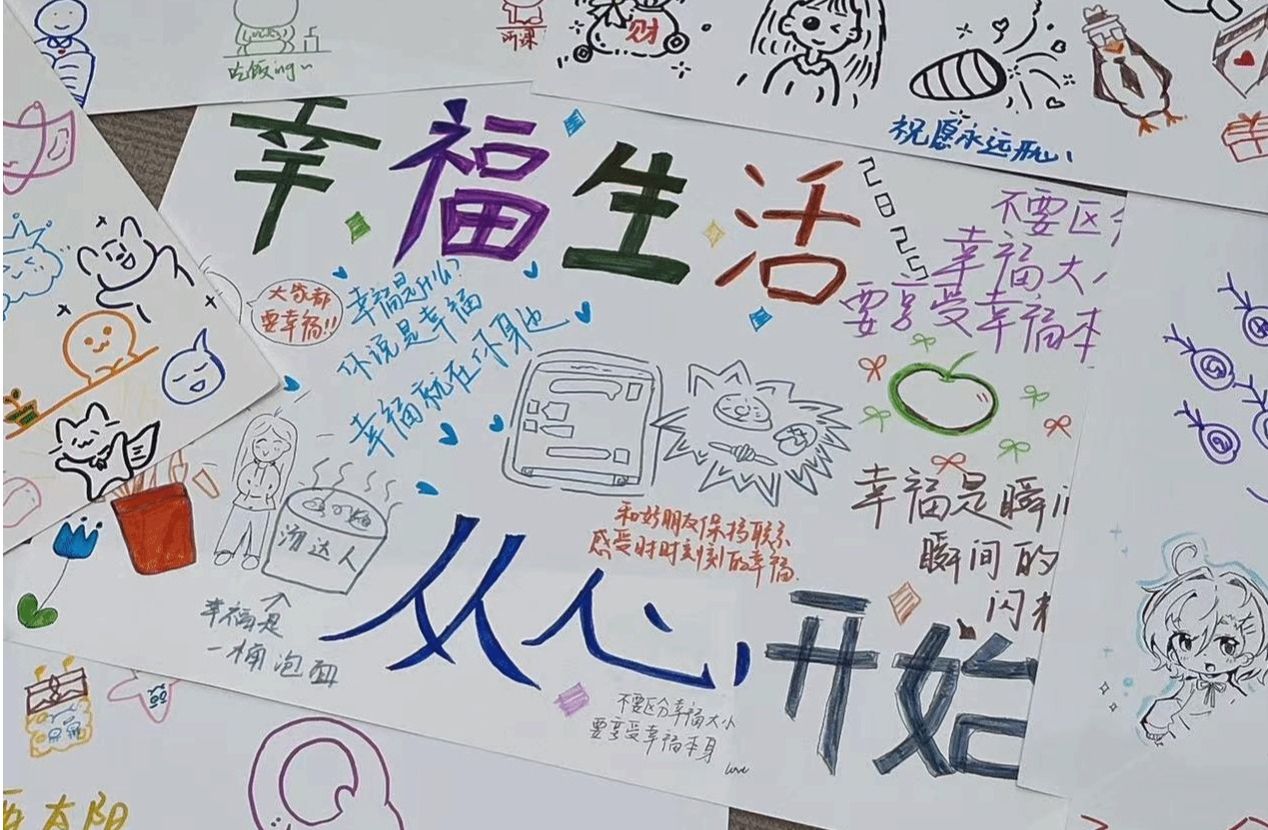 吃饭ing~
听课
财
祝愿永远开心
幸福生活
2025
不要区
幸福大
要享受幸福本
大家都
要幸福!!
幸福是什么?
你说是幸福
幸福就在你身边
汤达人
幸福是
一桶泡面
和好朋友保持联系
感受时时刻刻的幸福.
幸福是瞬
瞬间的
闪
从心开始
不要区分幸福大小
要享受幸福本身
love
太阳